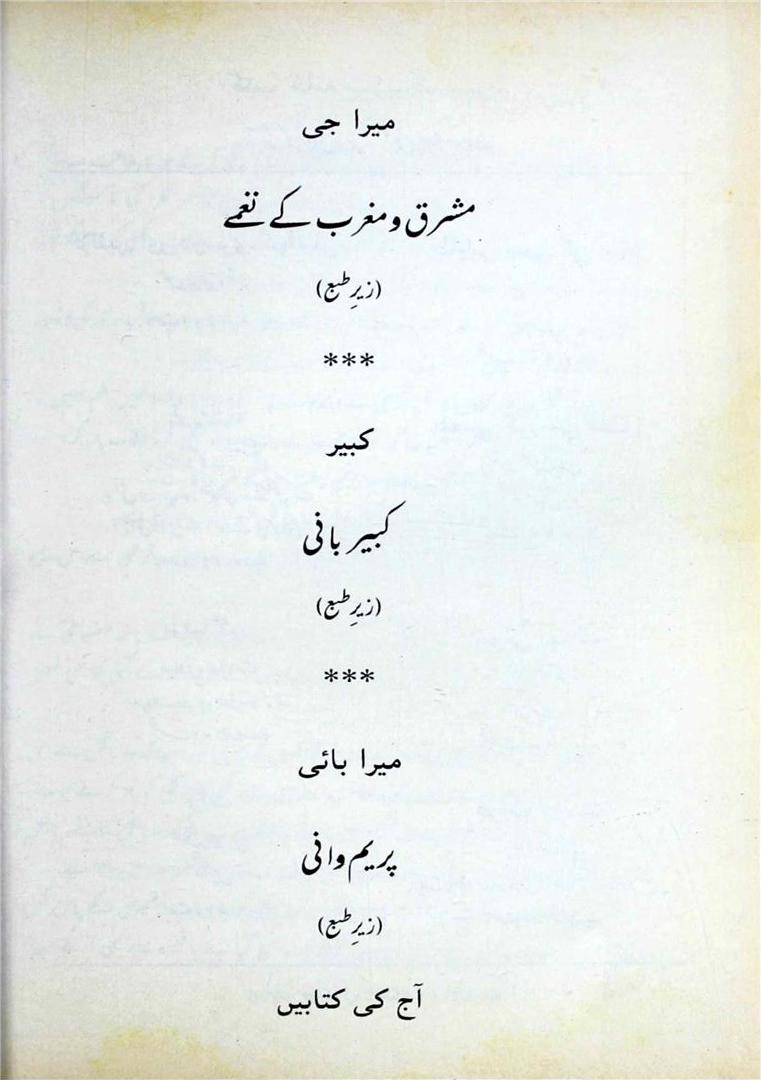 میرا جی
مشرق و مغرب کے نغمے
(زیرِ طبع)
***
کبیر
کبیر بانی
(زیرِ طبع)
***
میرا بائی
پریم وانی
(زیرِ طبع)
آج کی کتابیں